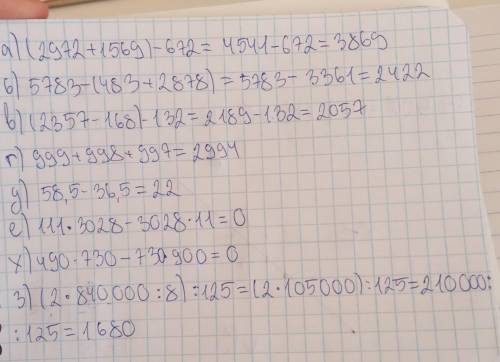 а) (2972+1569)-672= 4541-672=3869
б) 5783-(483+2878)=5783-3361=2422
в) (2357-168)-132=2189-132=2057
г) 999+998+997=2994
д) 58,5-36,5=22
е) 111·3028-3028·11=0
х) 490·730-730·900=0
з) (2·840000:8):125=(2·105000):125=210000:
:125=1680